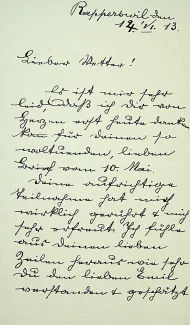 Rapperswil den
12. VI. 13.
Lieber Vetter!
Es ist mir sehr
leid daß ich dir von
Herzen erst heute danke
für deinen so
woltuenden, lieben
Brief vom 10. Mai.
Deine aufrichtige
Teilnahme hat mich
wirklich gerührt & mich
sehr erfreut. Ich fühle
aus deinen lieben
Zeilen heraus wie sehr
Du den lieben Emil
verstanden & geschätzt